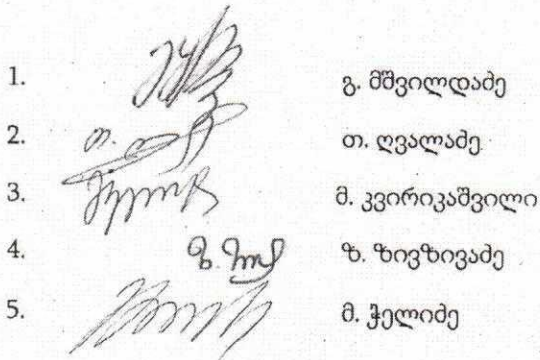 1. გ. მშვილდაძე
2. თ. ღვალაძე
3. მ. კვირიკაშვილი
4. ზ. ზივზივაძე
5. მ. ჭელიძე